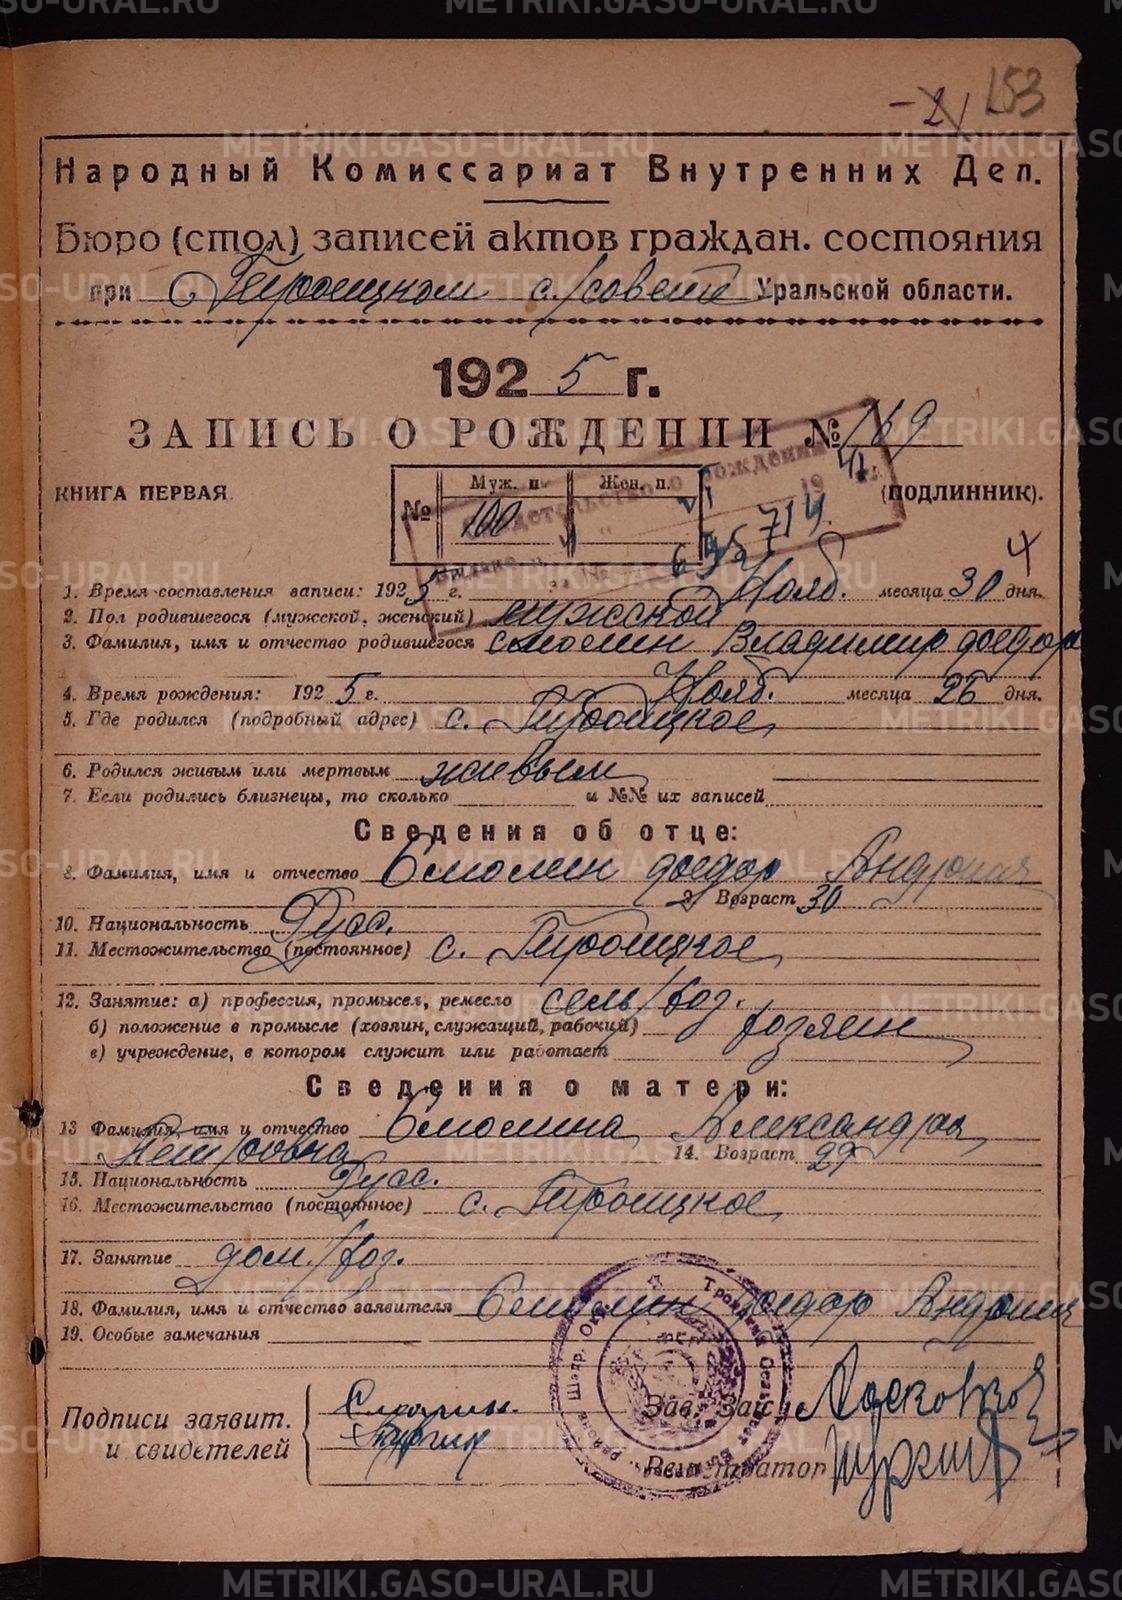 153
Народный Комиссариат Внутренних Дел.
Бюро (стол) записей актов граждан. состояния
при Троицком с/совете Уральской области.
1925 г.
ЗАПИСЬ О РОЖДЕНИИ № 189
КНИГА ПЕРВАЯ
(ПОДЛИННИК).
Муж. п. Жен. п.
№ 100
1. Время составления записи: 1925 г. Нояб. месяца 30 дня.
2. Пол родившегося (мужской, женский) мужской
3. Фамилия, имя и отчество родившегося Смолин Владимир Федор
4. Время рождения: 1925 г. Нояб. месяца 26 дня.
5. Где родился (подробный адрес) с. Троицкое
6. Родился живым или мертвым живым
7. Если родились близнецы, то сколько и №№ их записей
Сведения об отце:
8. Фамилия, имя и отчество Смолин Федор
9. Возраст 30
10. Национальность Русс.
11. Местожительство (постоянное) с. Троицкое
12. Занятие: а) профессия, промысел, ремесло сель/хоз.
б) положение в промысле (хозяин, служащий, рабочий) хозяин
в) учреждение, в котором служит или работает
Сведения о матери:
13 Фамилия, имя и отчество Смолина Александра
Петровна 14. Возраст 27
15. Национальность Русс.
16. Местожительство (постоянное) с. Троицкое
17. Занятие дом./хоз.
18. Фамилия, имя и отчество заявителя Смолин Федор
19. Особые замечания
Подписи заявит.
и свидетелей
Смолин.
Зав. Загс
Регистратор
METRIKI.GASO-URAL.RU